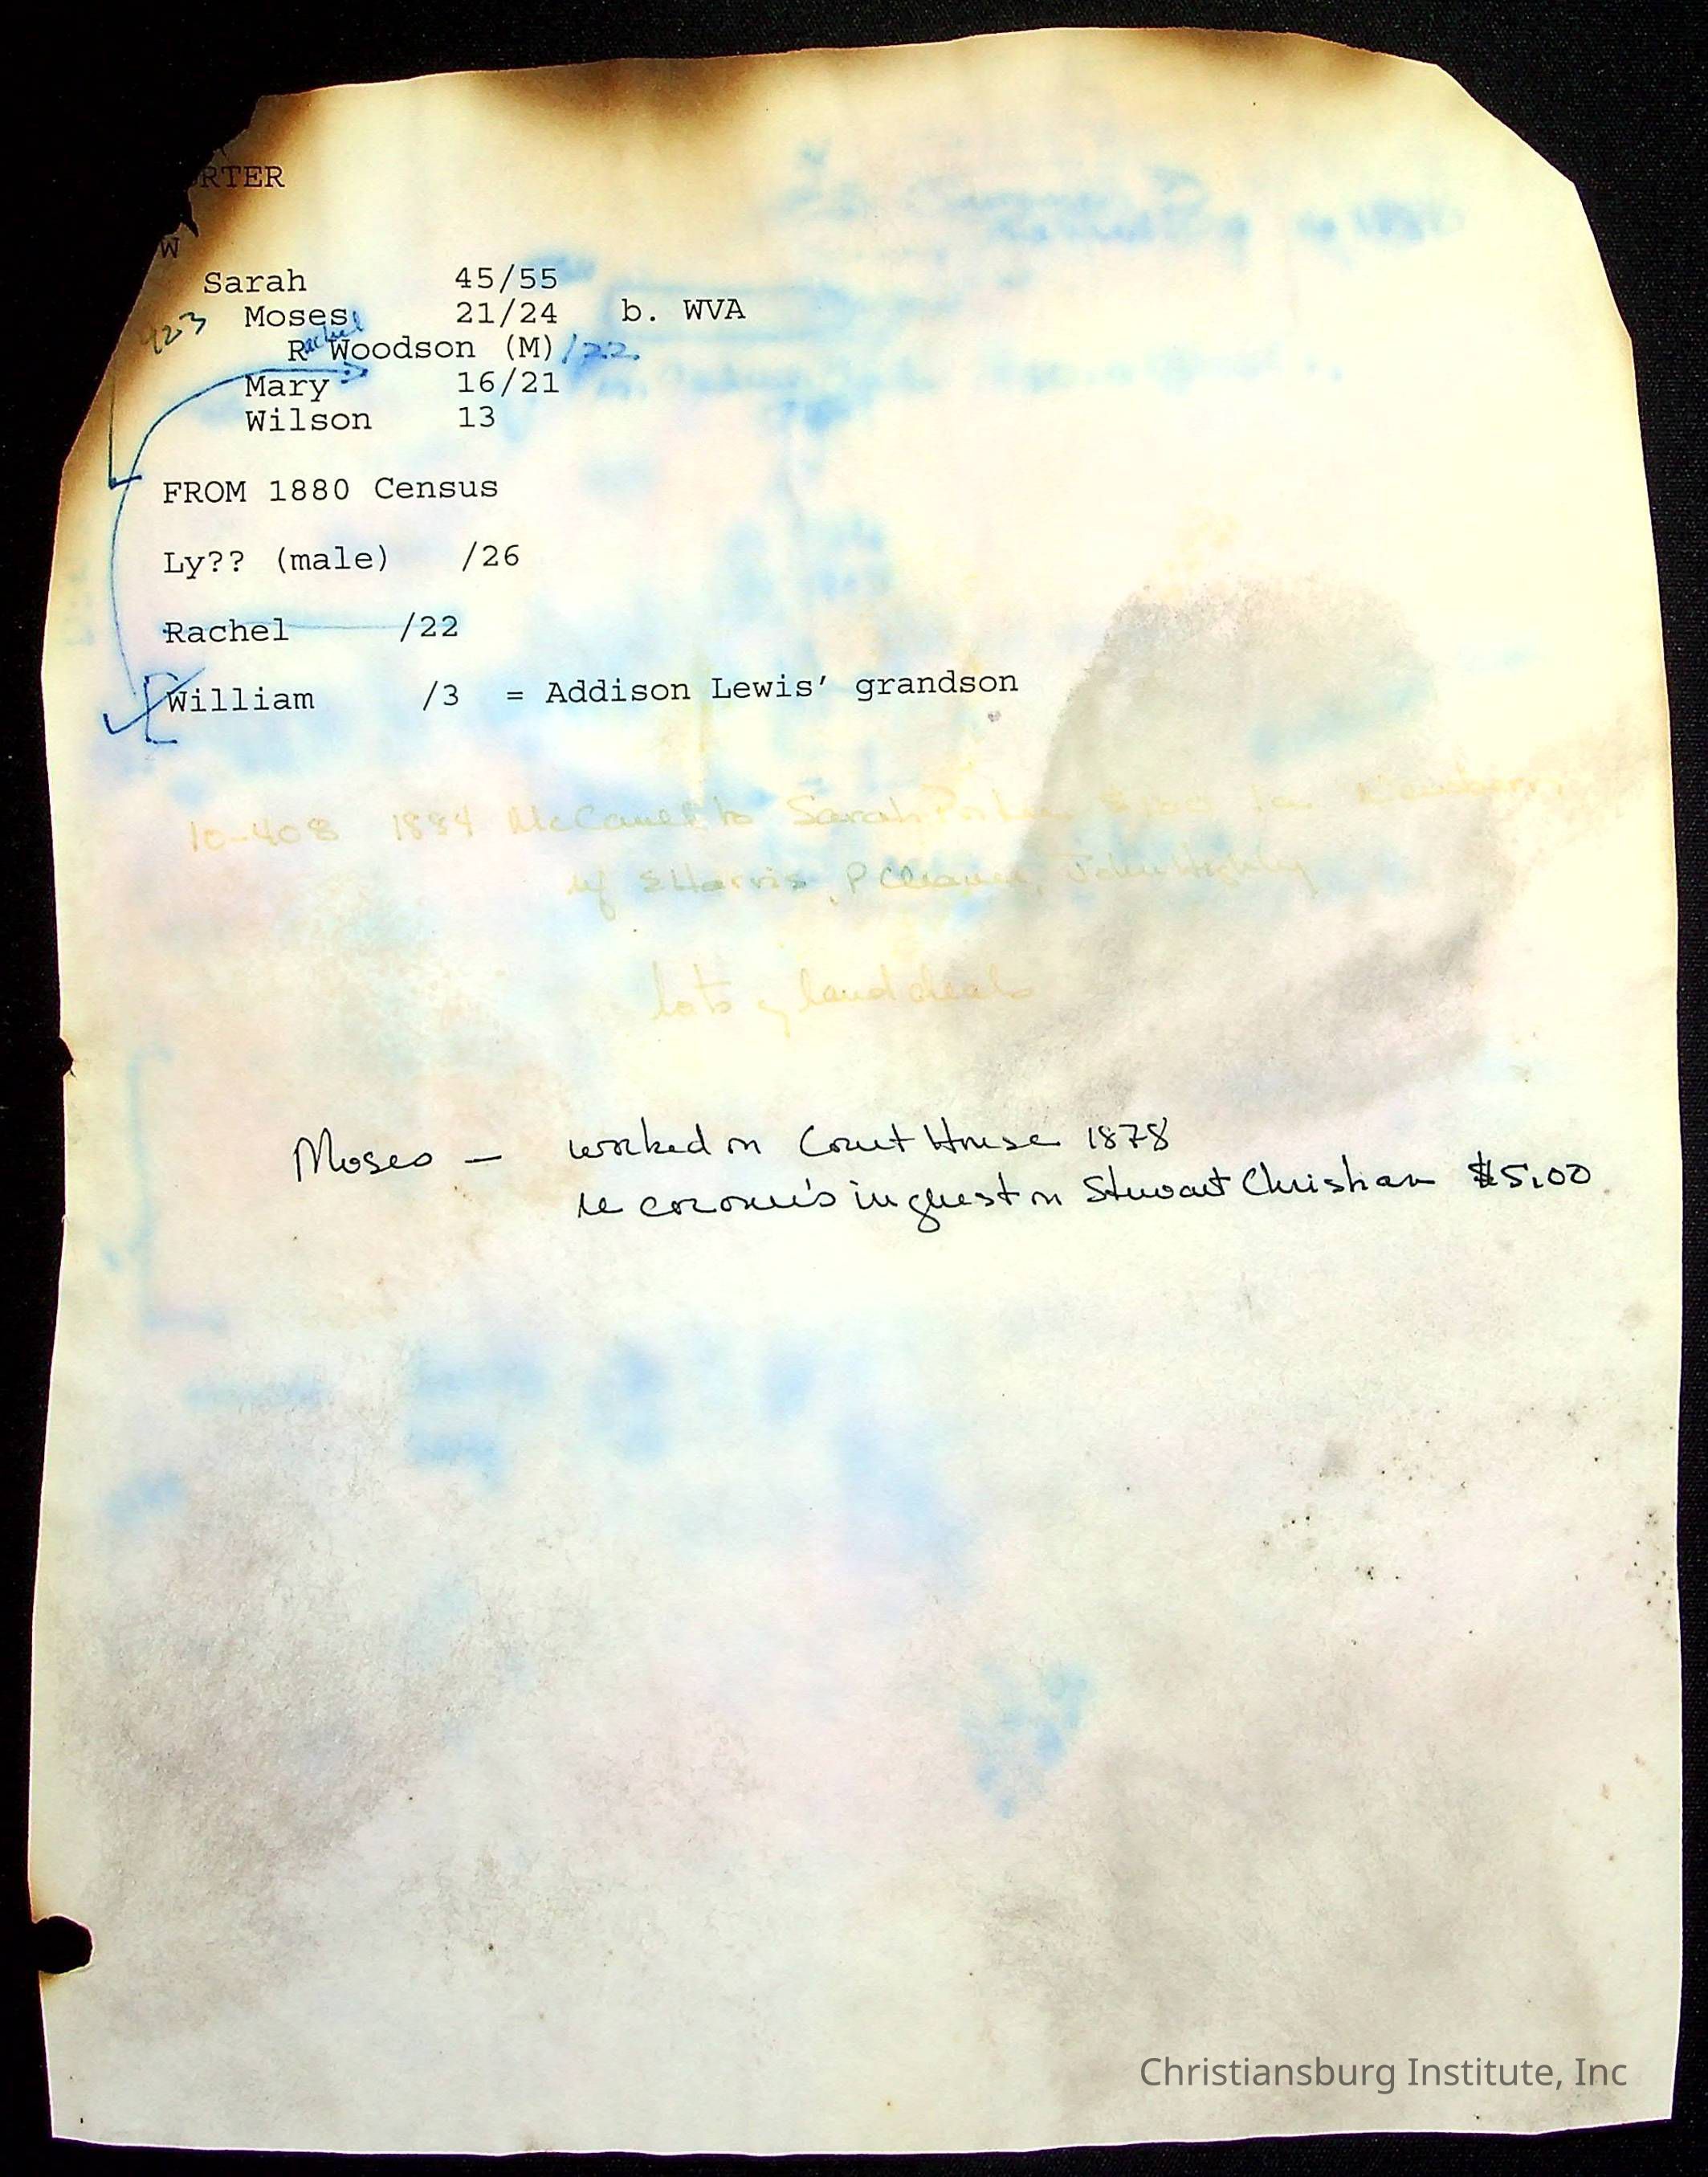 RTER
W
Sarah 45/55
423 Moses 21/24 b. WVA
Rachel Woodson (M) /22
Mary 16/21
Wilson 13
FROM 1880 Census
Ly?? (male) /26
Rachel /22
William /3 = Addison Lewis' grandson
10-408 1884 McCauel to Sarah Porter $100 1a Newbern
of S Harris, P Cleaver, John
lots of land deals
Moses — worked on Court House 1878
re coroner's inquest on Stuart Christian $5.00
Christiansburg Institute, Inc